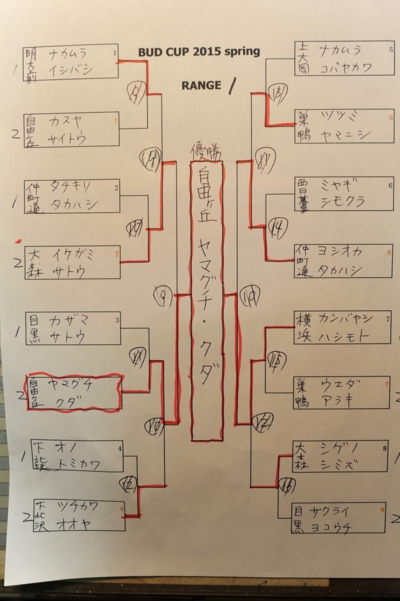 BUD CUP 2015 spring
RANGE 1
優勝
自由ヶ丘 ヤマグチ・クダ
1
明大前
ナカムラ 1
イシバシ
2
自由ヶ丘
カスヤ 1
サイトウ
1
仲町通
タチキリ 2
タカハシ
2
大森
イケガミ 2
サトウ
1
目黒
カザマ 3
サトウ
2
自由ヶ丘
ヤマグチ
クダ
1
オノ 4
トミカワ
2
下北沢
ツチカワ 4
オオヤ
上大岡
ナカムラ 5
コバヤカワ
巣鴨
ツツミ 5
ヤマニシ
ミヤギ 6
シモクラ
仲町通
ヨシオカ 6
タカハシ
横浜
カンバヤシ 7
ハシモト
巣鴨
ウエダ 7
アラキ
2
シゲノ 8
シミズ
1
目黒
サクライ 8
ヨコウチ
2
9
10
12
13
14
16